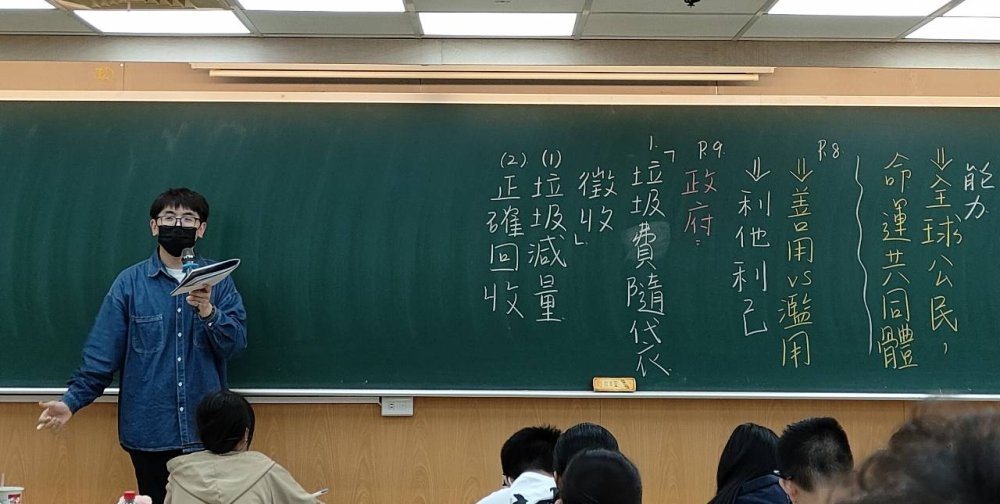 能力
⇒全球公民，
命運共同體
P.8
⇒善用vs濫用
⇒利他利己
P.9
政府：
1.「垃圾費隨代衣
徵收」
(1)垃圾減量
(2)正確回收